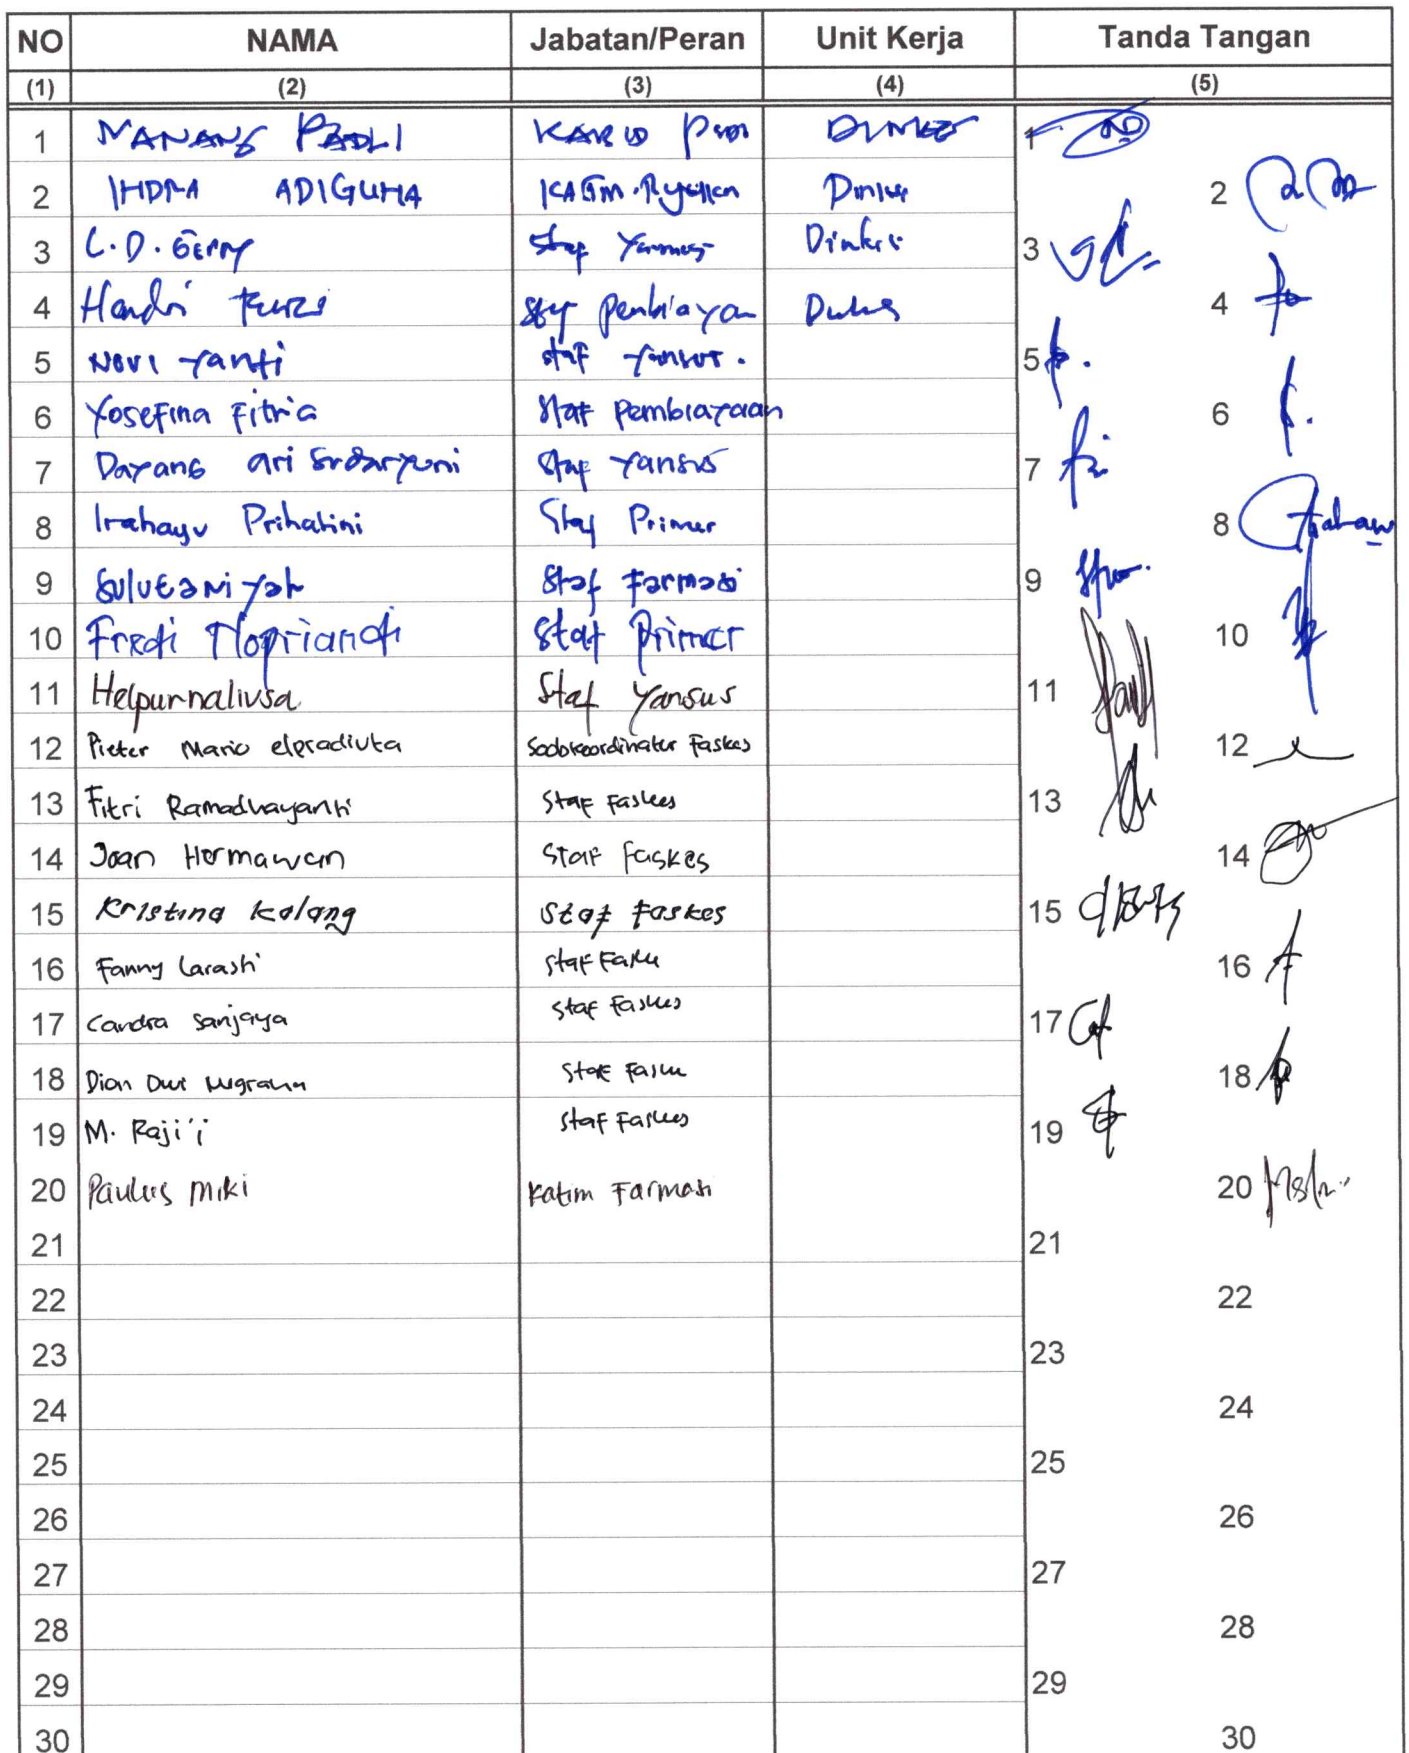 NO NAMA Jabatan/Peran Unit Kerja Tanda Tangan
(1) (2) (3) (4) (5)
1 NANANG PADLI DINKES 1
2 ADIGUNA 2
3 L.D. GERRY Staf Dinkes 3
4 Hendri Staf Pembiayaan Dinkes 4
5 Novi Yanti Staf Yansus. 5
6 Yosefina Fitria Staf Pembiayaan 6
7 Dayang Ari Sudaryuni Staf Yansus 7
8 Irahayu Prihatini Staf Primer 8
9 Suluganiyah Staf Farmasi 9
10 Fredi Nopriandi Staf Primer 10
11 Helpurnalivsa Staf Yansus 11
12 Pieter Mario elpradivta Faskes 12
13 Fitri Ramadhayanti Staf Faskes 13
14 Joan Hermawan Staf Faskes 14
15 Kristina Kalang Staf Faskes 15
16 Fanny Larasti Staf 16
17 Candra Sanjaya Staf Faskes 17
18 Dian Dwi Nugraha Staf 18
19 M. Raji'i Staf Faskes 19
20 Paulus Miki Katim Farmasi 20
21 21
22 22
23 23
24 24
25 25
26 26
27 27
28 28
29 29
30 30